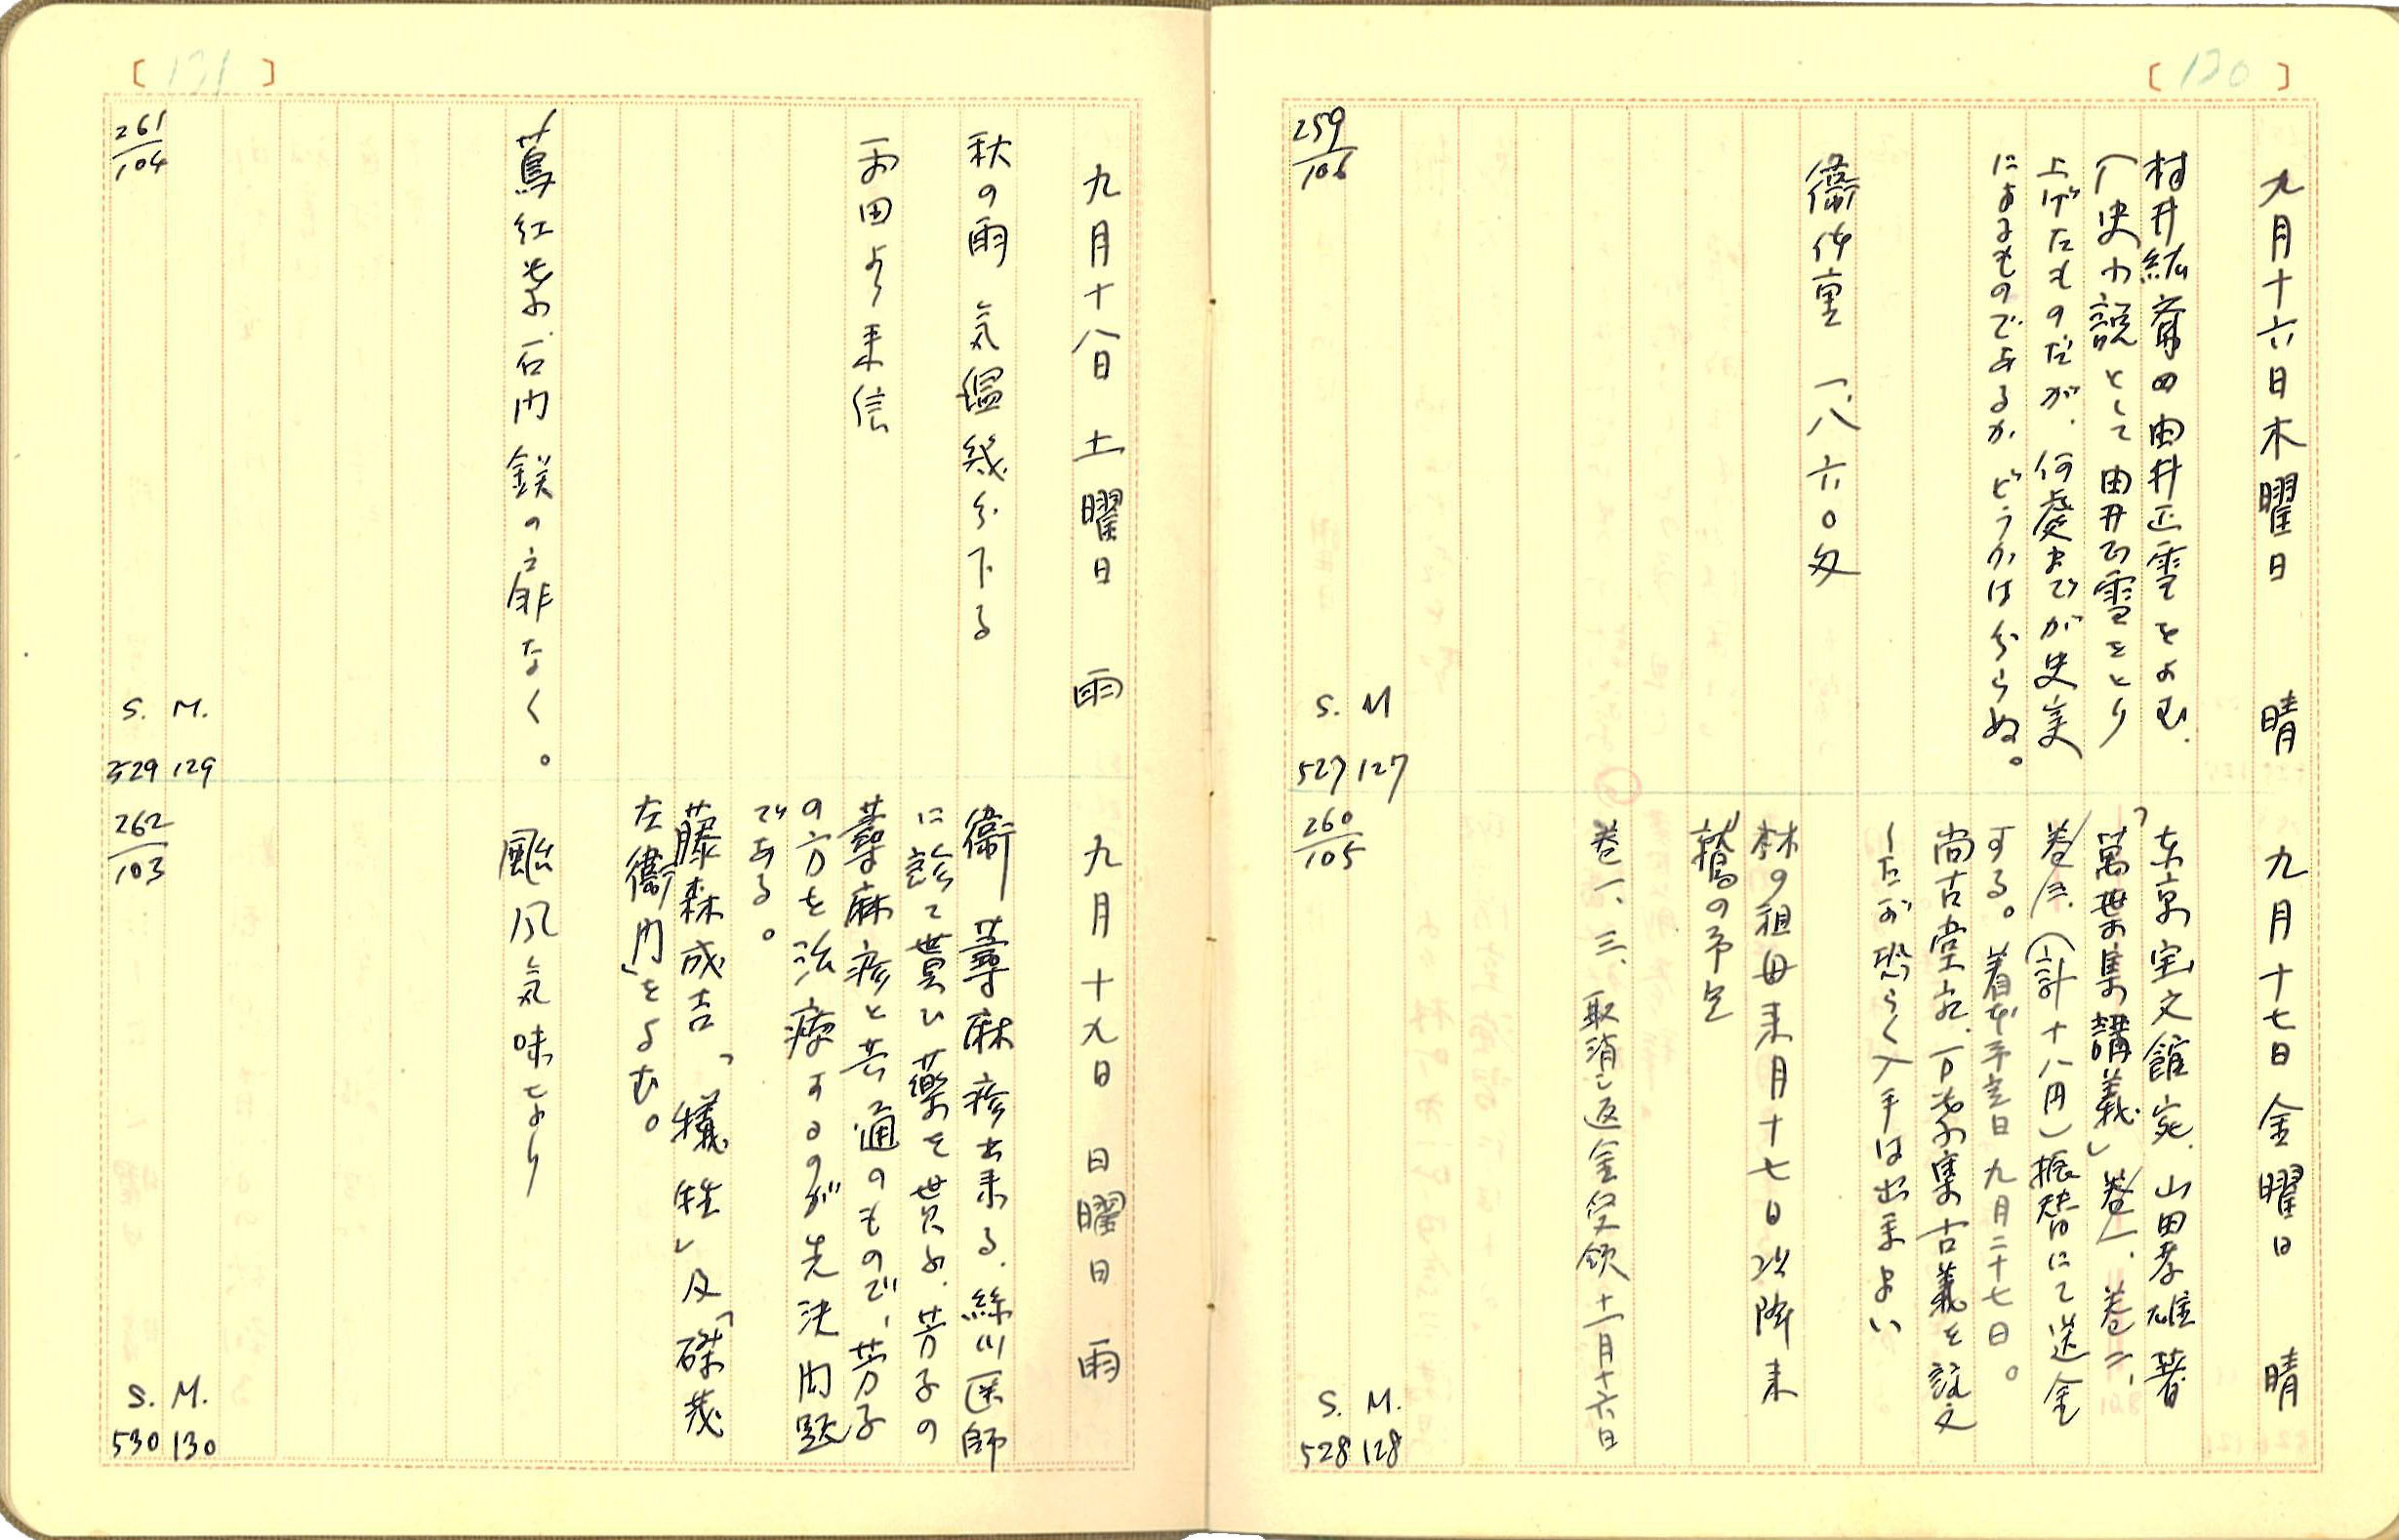 [130]
九月十六日木曜日 晴
村井紘斎の由井正雪をよむ.
(史的説として由井正雪をとり
上げたものだが、何處までが史実
によるものであるかどうかは分らぬ。
衛体重 一、八六〇匁
259/106
S. M
527 127
九月十七日金曜日 晴
東京宝文館宛、山田孝雄著
「萬葉集講義」巻一、巻二、
巻三、(計十八円)振替にて送金
する。着本予定日 九月二十七日。
尚古堂宛、万葉集古義を註文
したが恐らく入手は出来まい
林の祖母来月十七日以降来
鷺の予定
巻一、三、取消し返金受領 十一月十六日
260/105
S. M.
528 128
[131]
九月十八日 土曜日 雨
秋の雨 気温幾分下る
雨田より来信
蔦紅葉、石門鉄の扉なく。
261/104
S. M.
529 129
九月十九日 日曜日 雨
衛 蕁麻疹出来る. 絲川医師
に診て貰ひ薬を貰ふ. 芳子の
蕁麻疹と共通のもので、芳子
の方を治療するのが先決問題
である。
藤森成吉「犠牲」及「磔茂
左衛門」をよむ。
颱風気味なり
262/103
S. M.
530 130